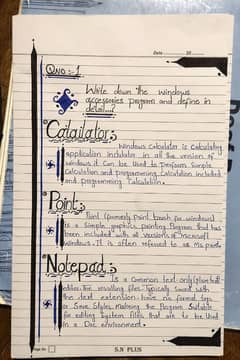 Date 20
QNo:-1
Write down the windows
accessories program and define in
detail...?
Calculator:
Windows Calculator is Calculating
application installer in all the version of
windows it can be used to Perform Simple
Calculation and programming Calculation included
and programming Calculation.
Paint:
Paint (formerly paint brush for windows)
is a Simple graphics painting Program that has
been included with all versions of microsoft
Windows. It is often referred to as Ms paint.
Notepad:
Is a Common text only (plain text)
editor the resulting files Typically Saved with
the text extension have no format tags
or Save Styles, making the Program Suitable
for editing System files that are to be used
in a Dos environment.
Page No
S.N PLUS